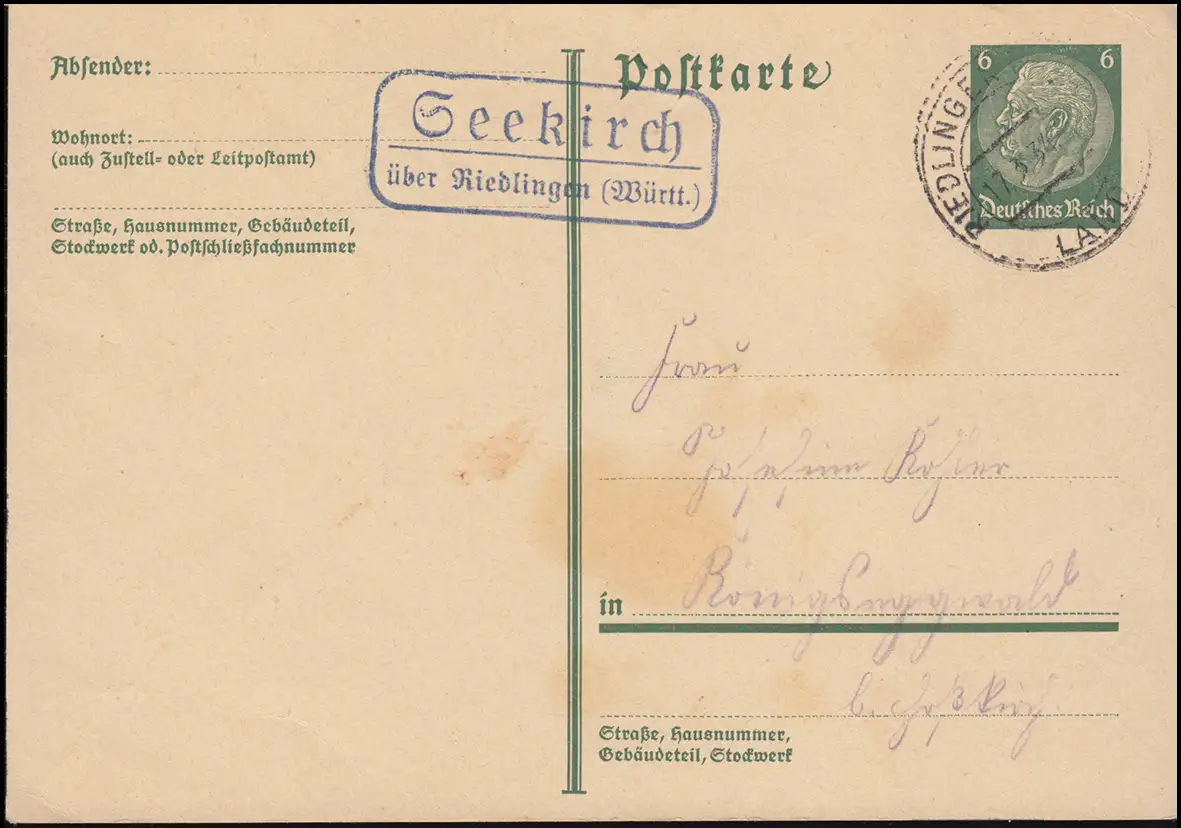 Absender:
Wohnort:
(auch Zustell- oder Leitpostamt)
Straße, Hausnummer, Gebäudeteil,
Stockwerk od. Postschließfachnummer
Seekirch
über Riedlingen (Württ.)
Postkarte
6 6
Deutsches Reich
RIEDLINGEN
LAND
Frau
Josefine Kohler
in Königseggwald
b. Hoßkirch.
Straße, Hausnummer,
Gebäudeteil, Stockwerk